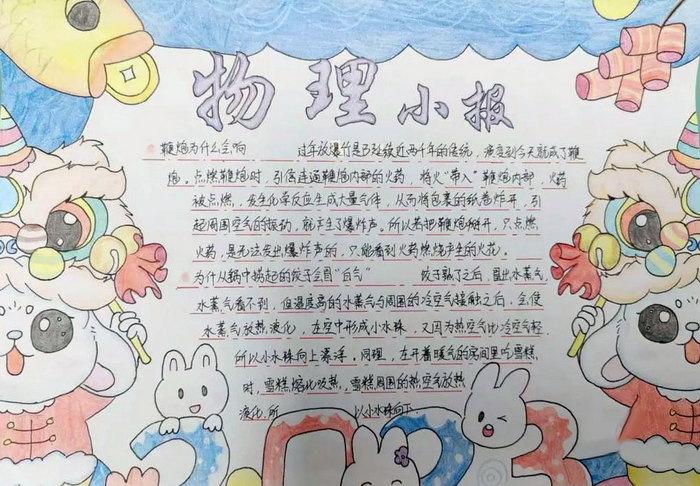 物理小报
鞭炮为什么会响 过年放爆竹是已延续近两千年的传统，演变到今天就成了鞭
炮。点燃鞭炮时，引信连通鞭炮内部的火药，将火“带入”鞭炮内部，火药
被点燃，发生化学反应生成大量气体，从而将包裹的纸卷炸开，引
起周围空气的振动，就产生了爆炸声。所以若把鞭炮掰开，只点燃
火药，是无法发出爆炸声的，只能看到火药燃烧产生的火花。
为什从锅中捞起的饺子会冒“白气” 饺子熟了之后，冒出水蒸气
水蒸气看不到，但温度高的水蒸气与周围的冷空气接触之后，会使
水蒸气放热液化，在空中形成小水珠，又因为热空气比冷空气轻
所以小水珠向上漂浮，同理，在开着暖气的房间里吃雪糕
时，雪糕熔化吸热，雪糕周围的热空气放热
液化，所 以小水珠向下
2023